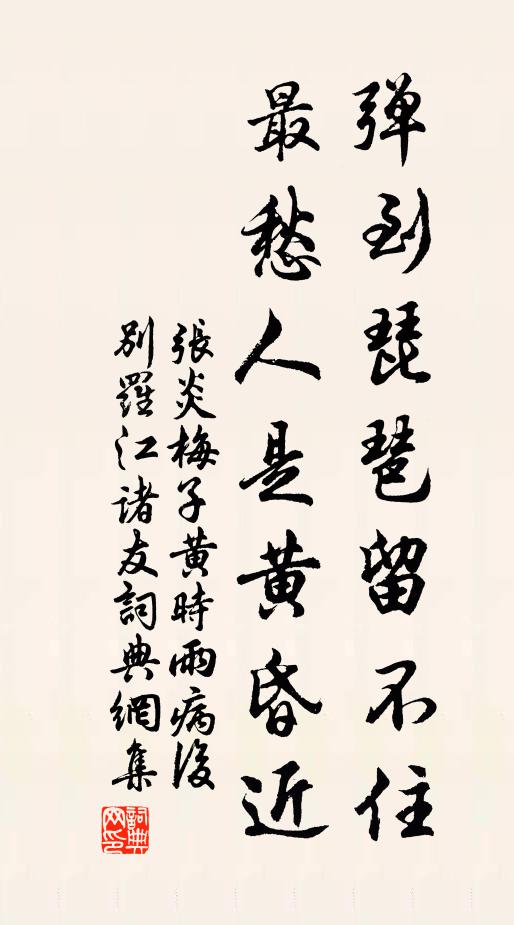 弹到琵琶留不住
最愁人是黄昏近
張炎梅子黄時雨病後
别羅江諸友詞典網集
詞典网印